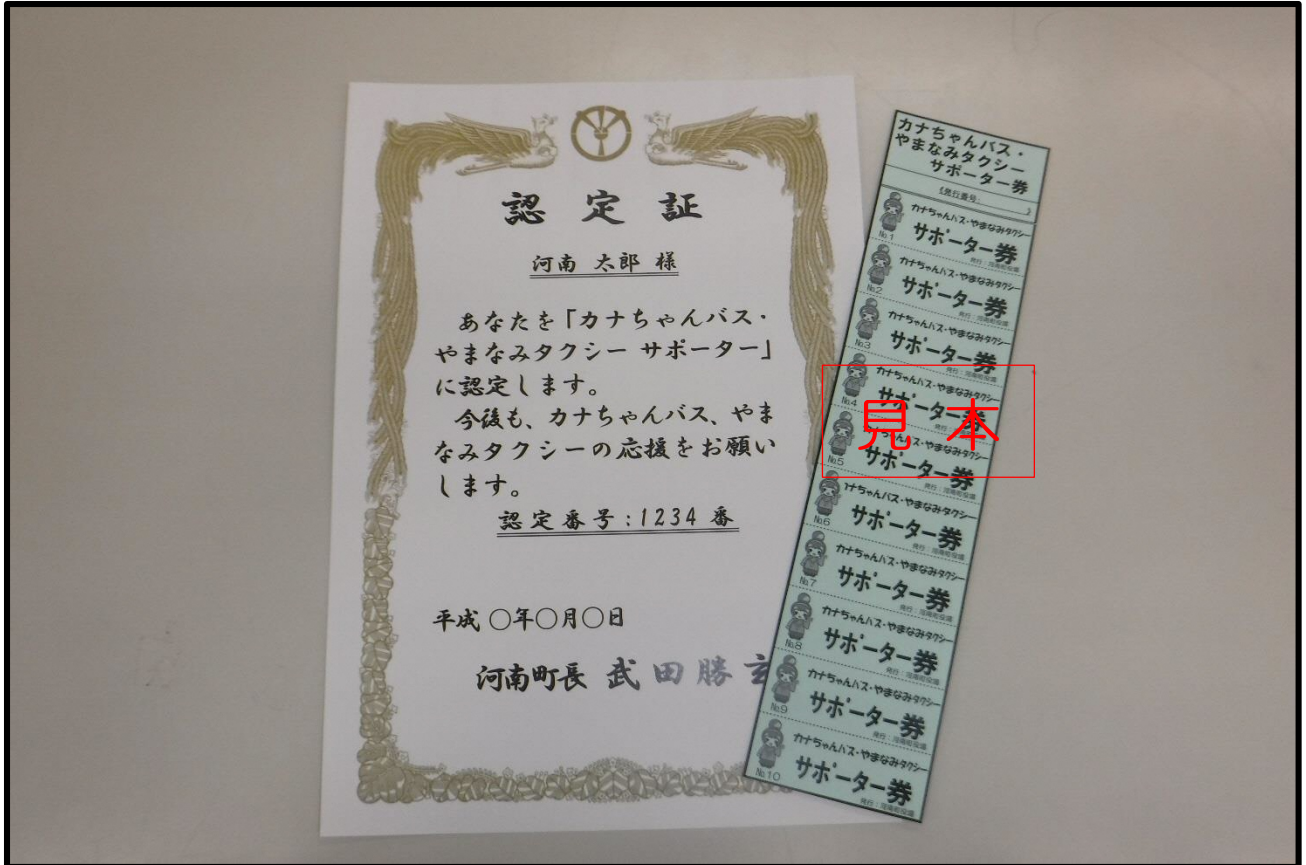 認定証
河南 太郎 様
あなたを「カナちゃんバス・
やまなみタクシー サポーター」
に認定します。
今後も、カナちゃんバス、やま
なみタクシーの応援をお願い
します。
認定番号:1234 番
平成 ○年○月○日
河南町長 武田勝玄
カナちゃんバス・
やまなみタクシー
サポーター券
(発行番号. )
カナちゃんバス・やまなみタクシー
サポーター券
№1 発行:河南町役場
カナちゃんバス・やまなみタクシー
サポーター券
№2 発行:河南町役場
カナちゃんバス・やまなみタクシー
サポーター券
№3 発行:河南町役場
カナちゃんバス・やまなみタクシー
サポーター券
№4 発行:
見本
ちゃんバス・やまなみタクシー
サポーター券
№5 発行:河南町役場
カナちゃんバス・やまなみタクシー
サポーター券
№6 発行:河南町役場
カナちゃんバス・やまなみタクシー
サポーター券
№7 発行:河南町役場
カナちゃんバス・やまなみタクシー
サポーター券
№8 発行:河南町役場
カナちゃんバス・やまなみタクシー
サポーター券
№9 発行:河南町役場
カナちゃんバス・やまなみタクシー
サポーター券
№10 発行:河南町役場